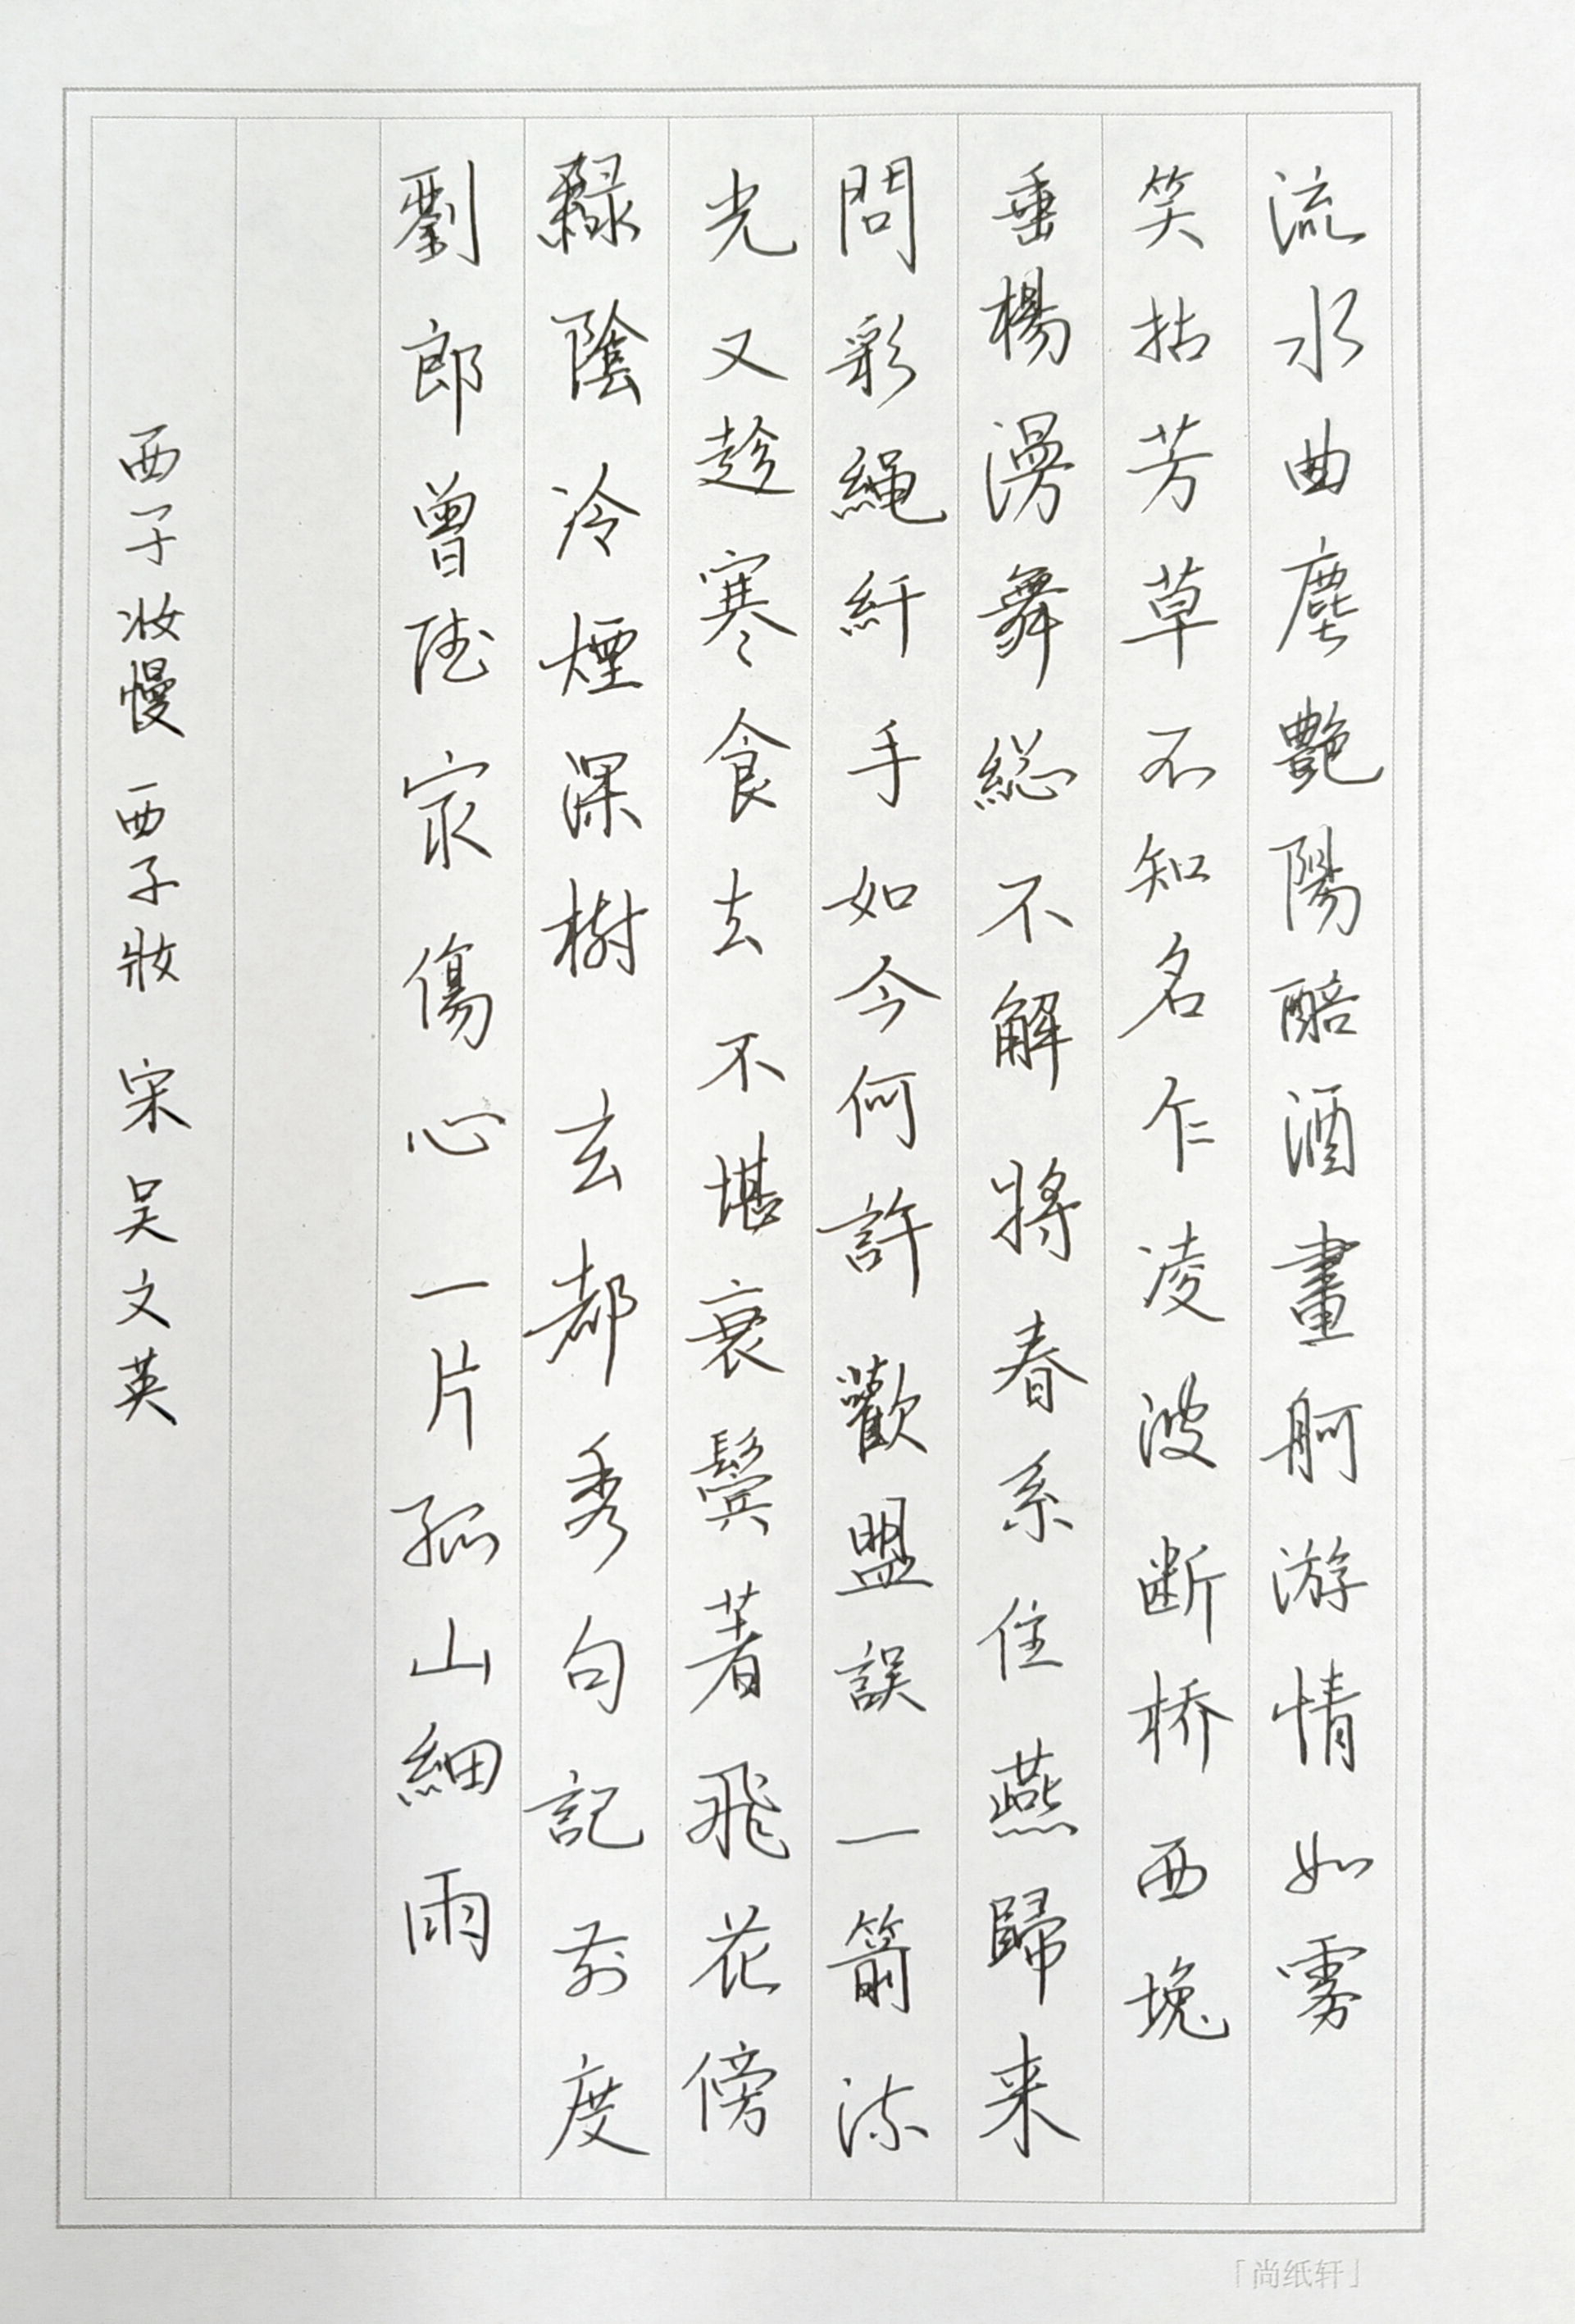 流水曲塵艷陽醅酒畫舸游情如霧
笑拈芳草不知名乍凌波断桥西堍
垂楊漫舞総不解將春系住燕歸来
問彩繩纤手如今何許歡盟誤一箭流
光又趁寒食去不堪衰鬢著飛花傍
綠陰冷煙深樹玄都秀句記前度
劉郎曾陆家傷心一片孤山細雨
西子妆慢 西子妝 宋 吴文英
「尚纸轩」